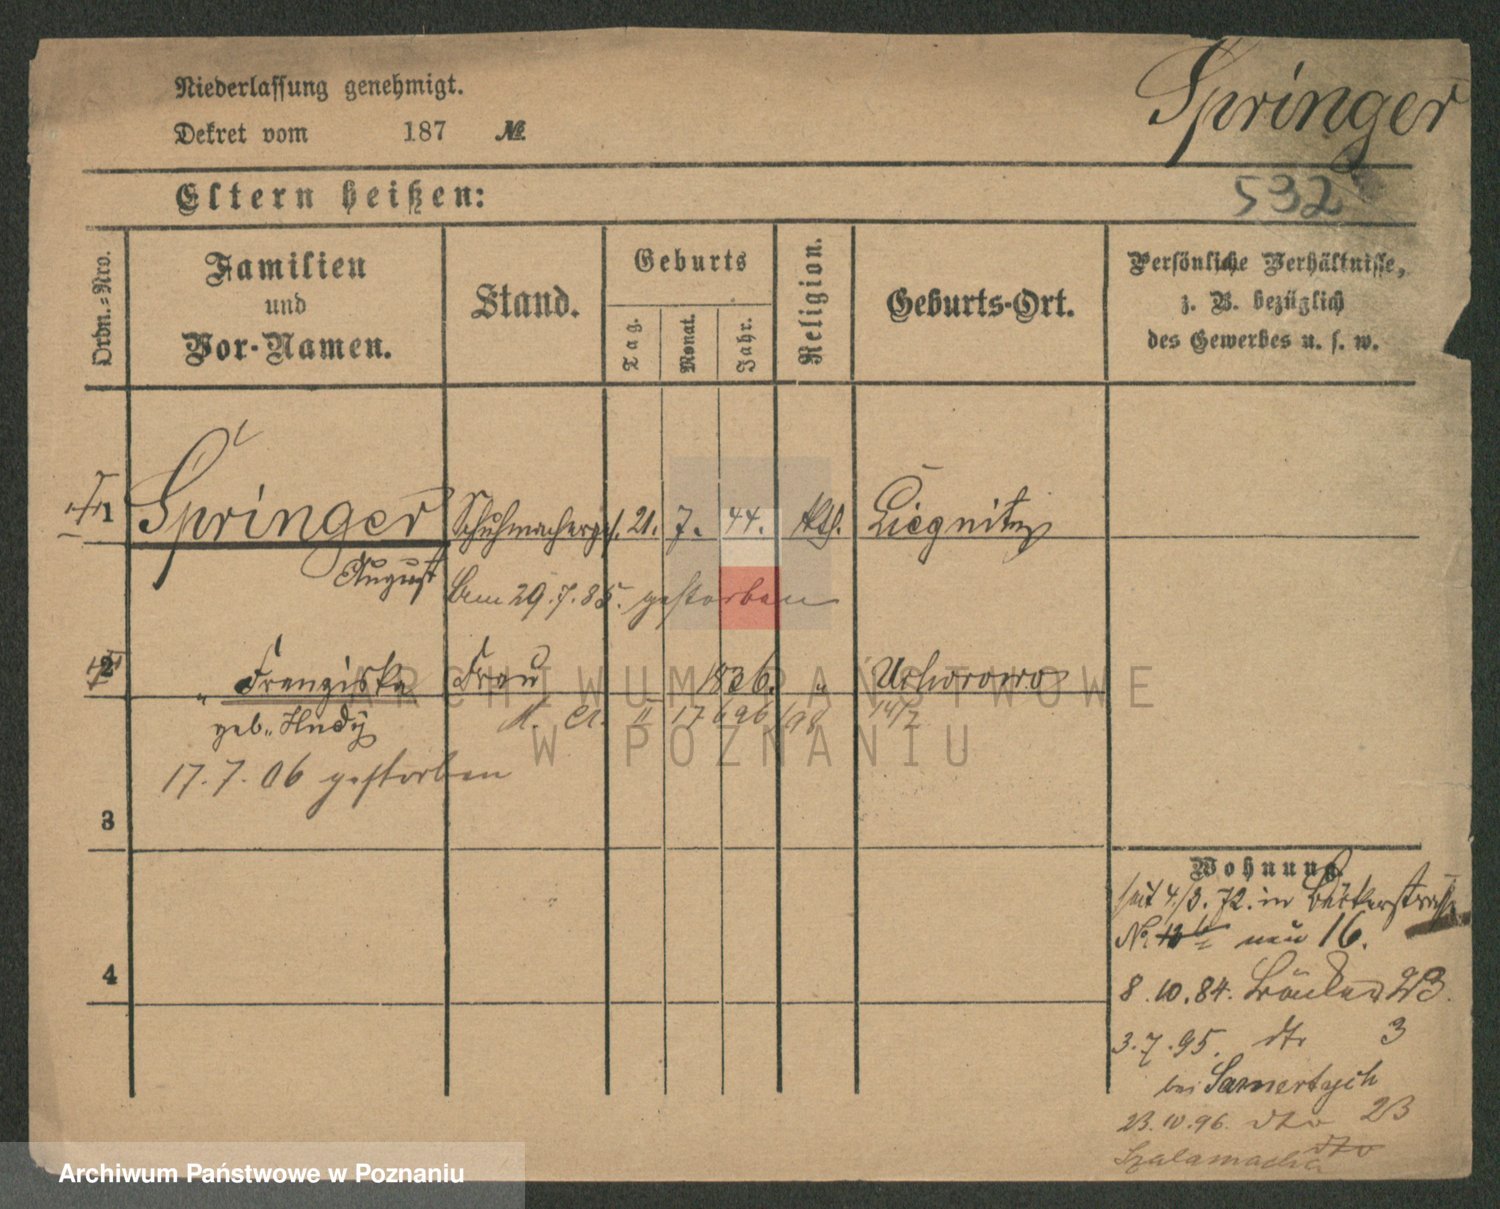 Niederlassung genehmigt.
Springer
Dekret vom 187 №
Eltern heißen:
532
Ordn.=Nro.
Familien und Vor-Namen.
Stand.
Geburts
Tag.
Monat.
Jahr.
Religion.
Geburts-Ort.
Persönliche Verhältnisse,
z. B. bezüglich
des Gewerbes u. s. w.
1 Springer Schuhmacherges. 21. 7. 44. kth. Liegnitz
August
Am 29.7.85. gestorben
2 " Franziska Frau 1836. "
geb.
17 6 96
14/7
17.7.06 gestorben
3
4
Wohnung
seit 4/3. 72. in Bäckerstraße
No. neu 16.
8.10.84. 23.
3.7.95. dto 3
bei
23.10.96. dto 23
dto
ARCHIWUM PAŃSTWOWE
W POZNANIU
Archiwum Państwowe w Poznaniu